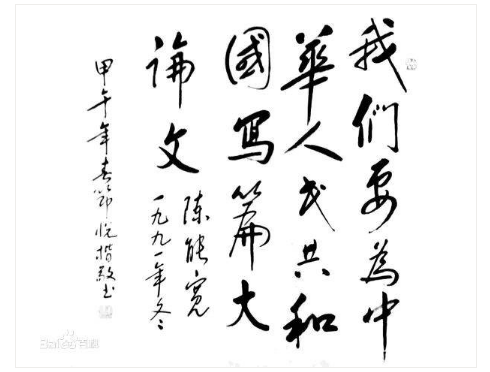 我們要為中
華人民共和
國寫篇大
論文
陈能宽
一九九一年冬
甲午年春節悦楷敬书
Baidu百科